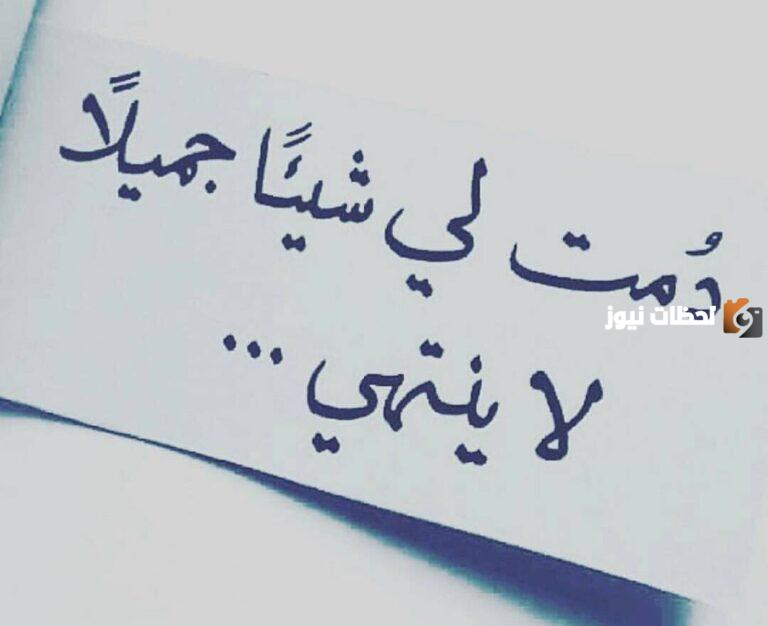 دُمت لي شيئًا جميلًا
لا ينتهي ...
لحظات نيوز